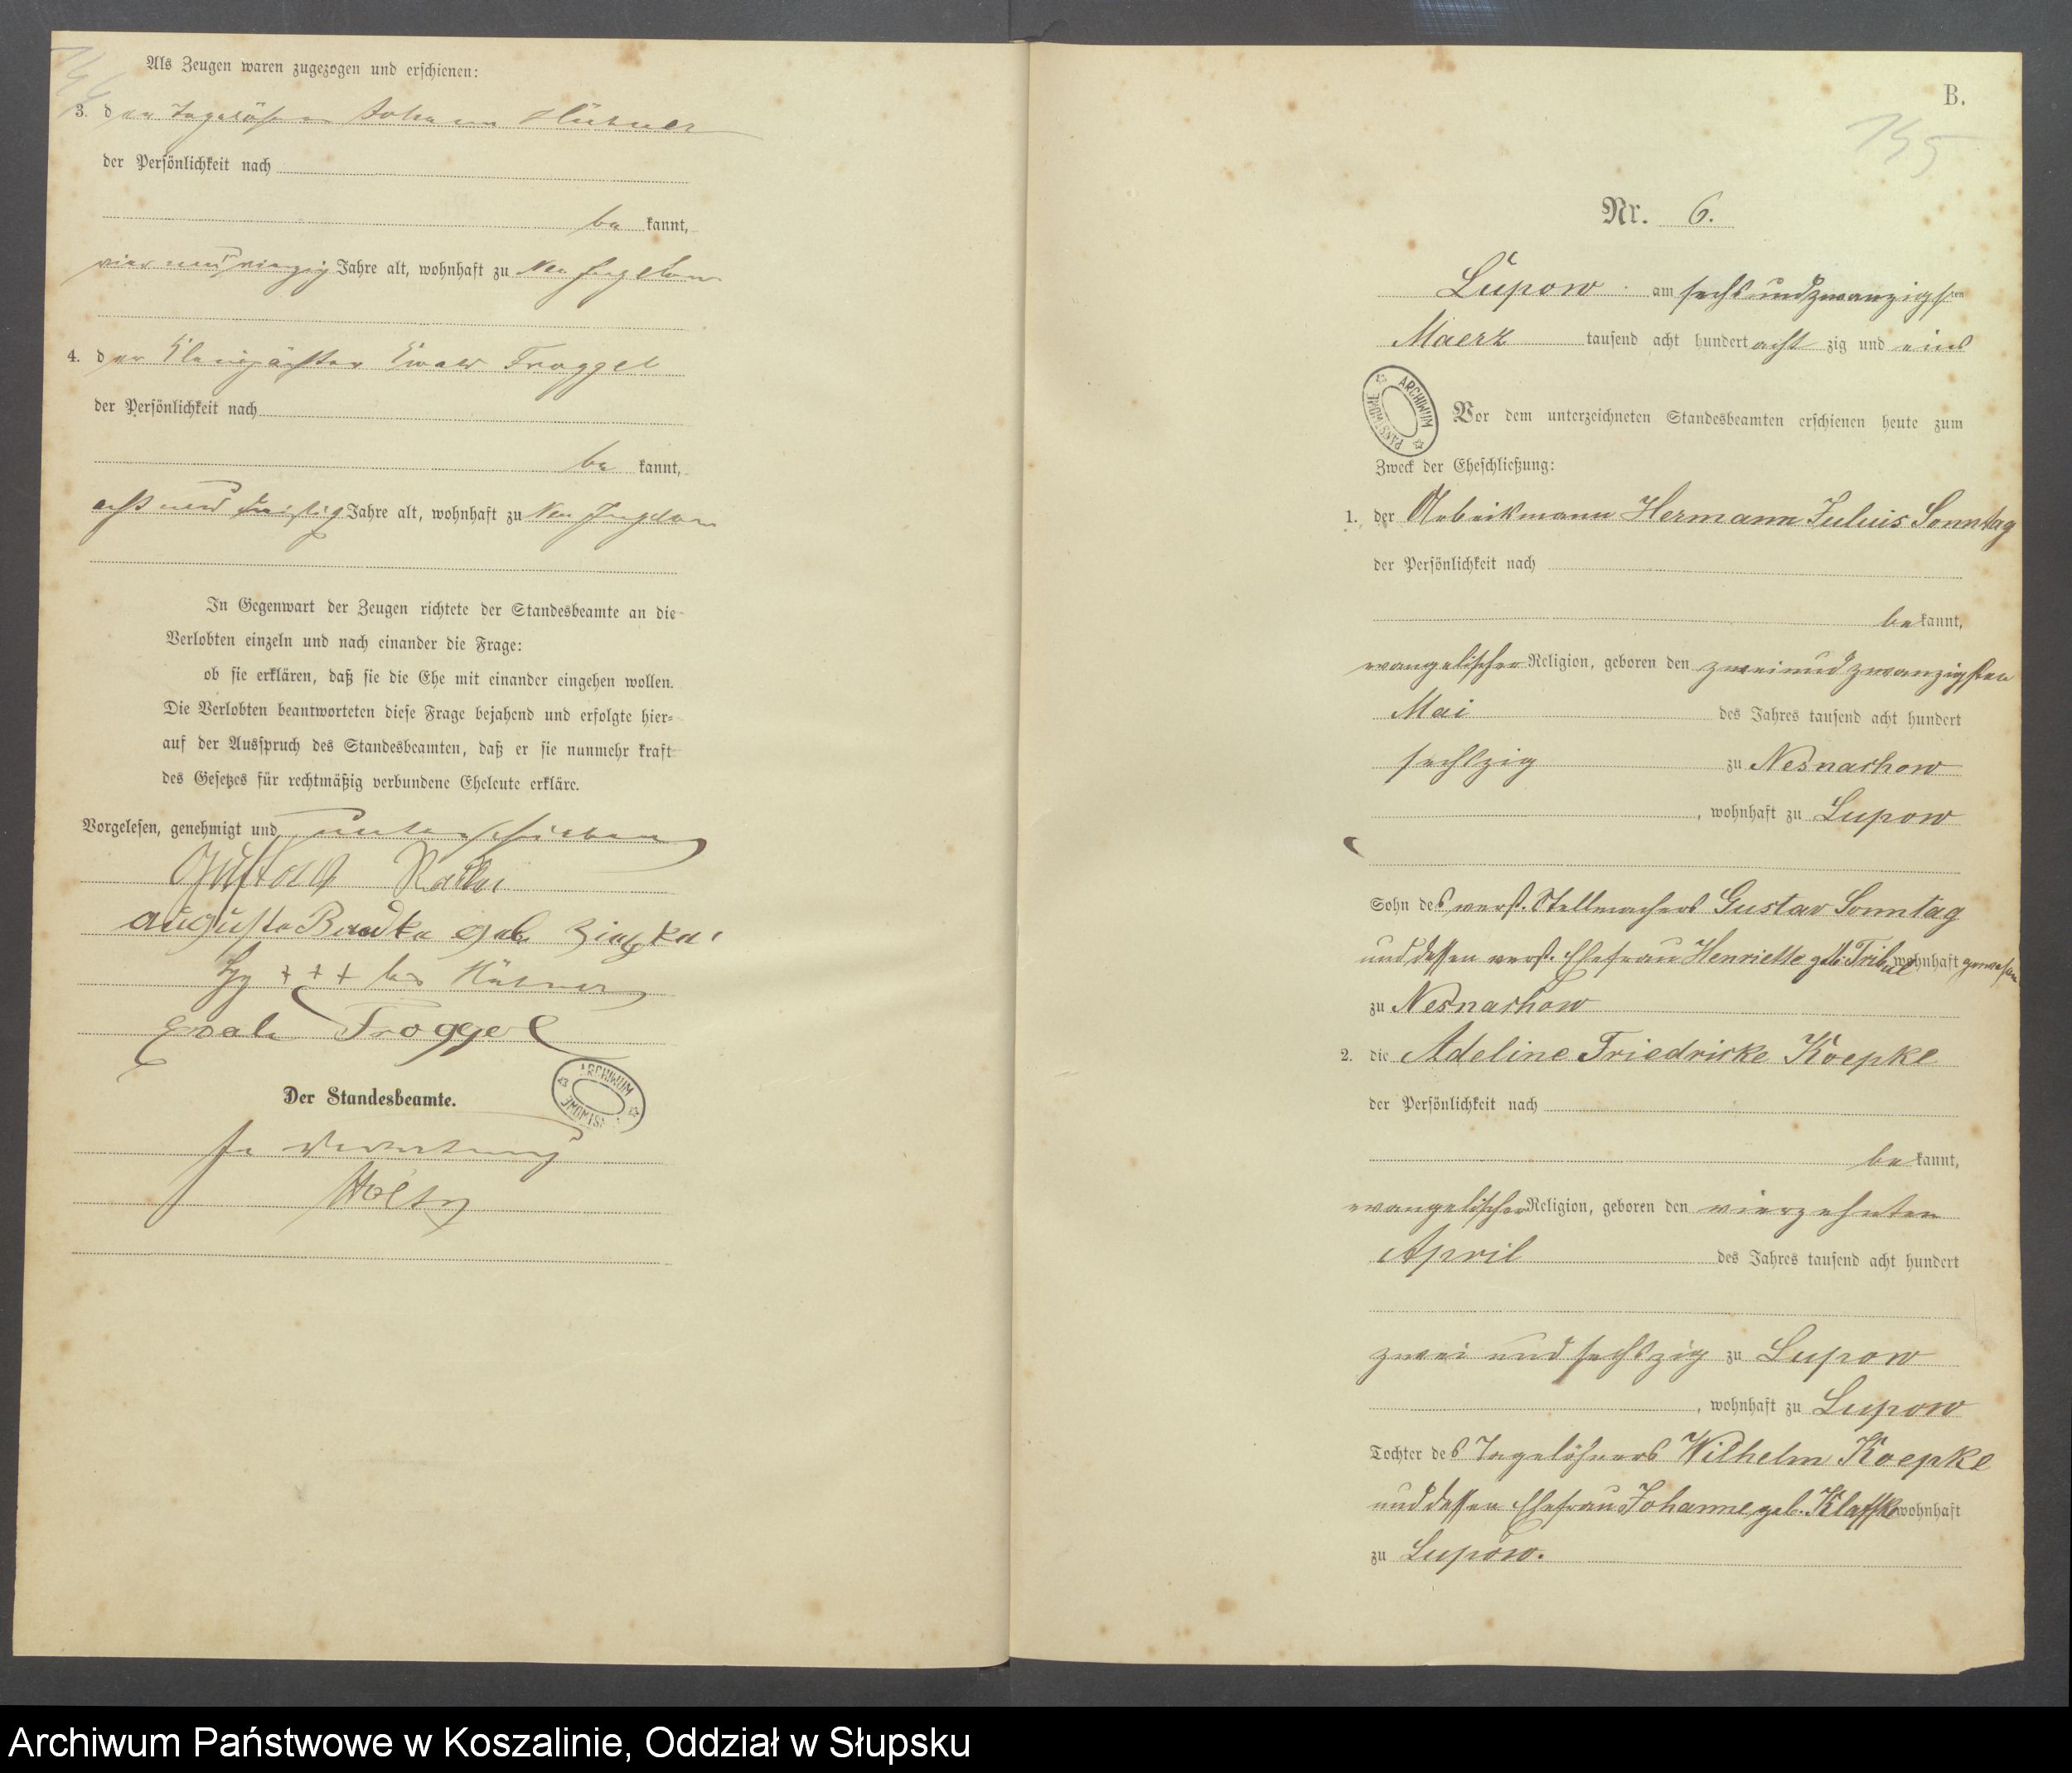 Als Zeugen waren zugezogen und erschienen:
3. der Tagelöhner Johann Hübner
der Persönlichkeit nach
be kannt,
vier und vierzig Jahre alt, wohnhaft zu Neu Jugelow
4. der Kleinpächter Ewald Froggel
der Persönlichkeit nach
be kannt,
acht und dreißig Jahre alt, wohnhaft zu Neu Jugelow
In Gegenwart der Zeugen richtete der Standesbeamte an die
Verlobten einzeln und nach einander die Frage:
ob sie erklären, daß sie die Ehe mit einander eingehen wollen.
Die Verlobten beantworteten diese Frage bejahend und erfolgte hier=
auf der Ausspruch des Standesbeamten, daß er sie nunmehr kraft
des Gesetzes für rechtmäßig verbundene Eheleute erkläre.
Vorgelesen, genehmigt und unterschrieben
Gustav
Auguste geb.
+++ des Hübner
Ewald Froggel
ARCHIWUM
Der Standesbeamte.
In Vertretung
B.
145
Nr. 6.
Lupow am sechsundzwanzigsten
Maerz tausend acht hundert acht zig und eins
ARCHIWUM PAŃSTWOWE
Vor dem unterzeichneten Standesbeamten erschienen heute zum
Zweck der Eheschließung:
1. der Arbeitsmann Hermann Julius Sonntag
der Persönlichkeit nach
be kannt,
evangelischer Religion, geboren den zweiundzwanzigsten
Mai des Jahres tausend acht hundert
sechszig zu Nesnachow
, wohnhaft zu Lupow
Sohn des verst. Stellmachers Gustav Sonntag
und dessen verst. Ehefrau Henriette geb. wohnhaft gewesen
zu Nesnachow
2. die Adeline Friedricke Koepke
der Persönlichkeit nach
be kannt,
evangelischer Religion, geboren den vierzehnten
April des Jahres tausend acht hundert
zwei und sechszig zu Lupow
, wohnhaft zu Lupow
Tochter des Tagelöhners Wilhelm Koepke
und dessen Ehefrau Johanne geb. Klaffke wohnhaft
zu Lupow.
Archiwum Państwowe w Koszalinie, Oddział w Słupsku